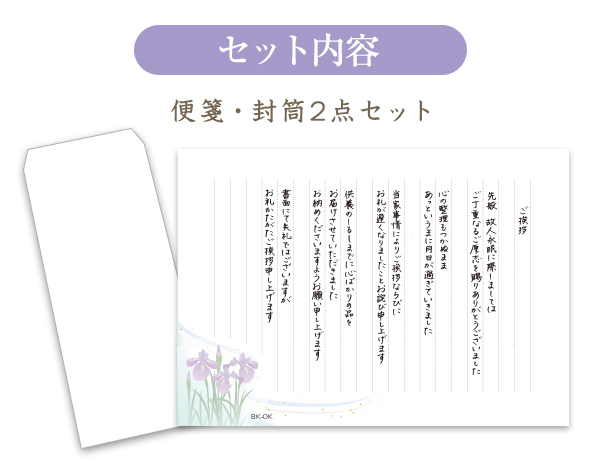 セット内容
便箋・封筒2点セット
ご挨拶
先般 故人永眠に際しましては
ご丁重なるご厚志を賜りありがとうございました
心の整理もつかぬまま
あっというまに月日が過ぎていきました
当家事情によりご挨拶ならびに
お礼が遅くなりましたことお詫び申し上げます
供養のしるしまでに心ばかりの品を
お届けさせていただきました
お納めくださいますようお願い申し上げます
書面にて失礼ではございますが
お礼かたがたご挨拶申し上げます
BK-OK